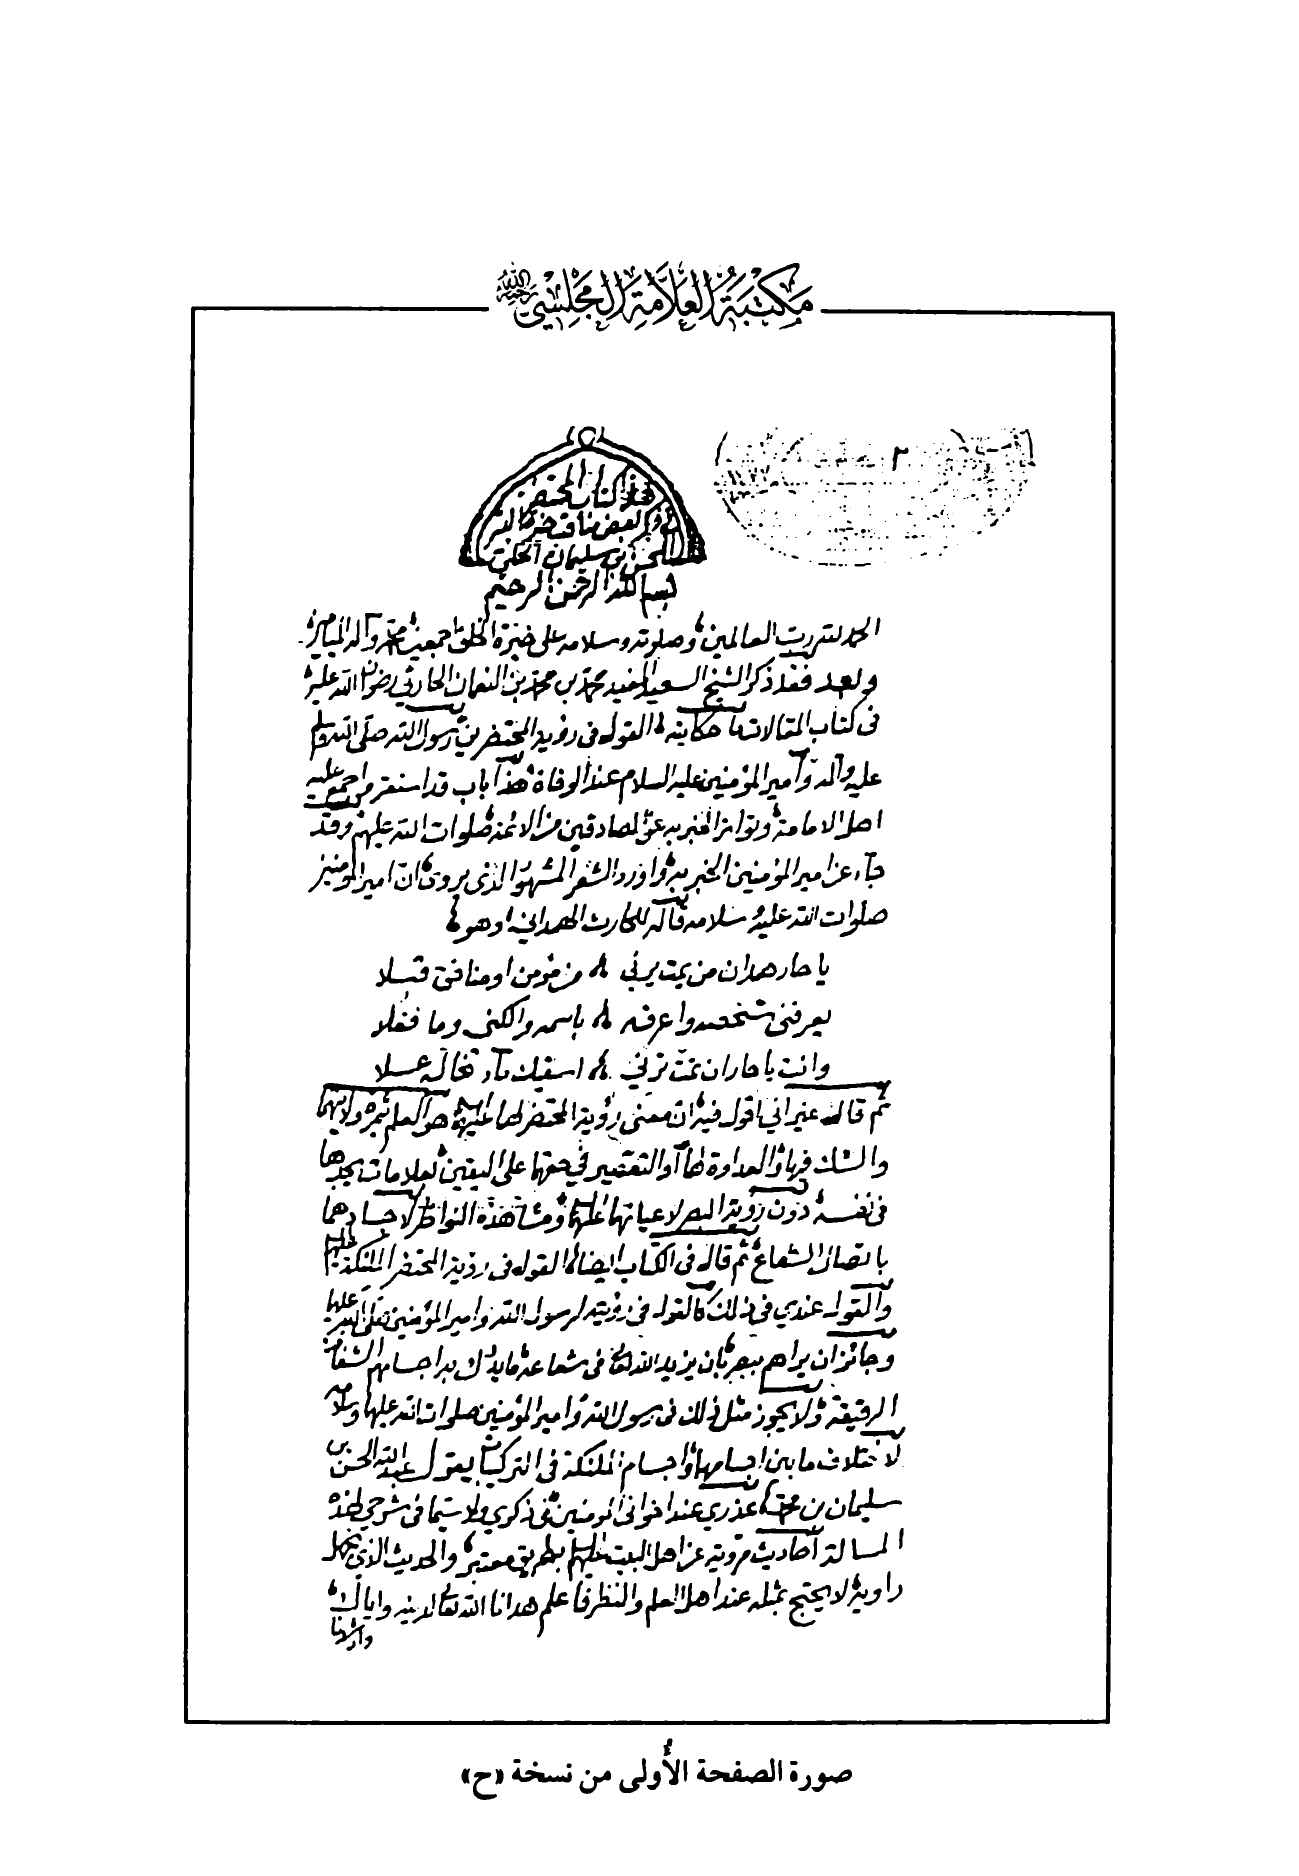 مكتبة العلامة المجلسي رحمه الله
٢
هذا كتاب المحتضر
للحسن بن سليمان الحلي
بسم الله الرحمن الرحيم
الحمد لله رب العالمين وصلوته وسلامه على خيرة الخلق اجمعين محمد وآله الميامين
وبعد فقد ذكر الشيخ السعيد المفيد محمد بن محمد بن النعمان الحارثي رضوان الله عليه
في كتاب المقالات ما حكايته القول في رؤية المحتضرين رسول الله صلى الله
عليه وآله وامير المؤمنين عليه السلام عند الوفاة هذا باب قد استقر اجمع عليه
اهل الامامة وتواتر الخبر به عن الصادقين من الائمة صلوات الله عليهم وقد
جآء عن امير المؤمنين الخبر به واورد الشعر المشهور الذي يروى ان امير المؤمنين
صلوات الله عليه وسلامه قاله للحارث الهمداني وهو
يا حار همدان من يمت يرني من مؤمن او منافق قبلا
يعرفني شخصه واعرفه باسمه والكنى وما فعلا
وانت يا حار ان تمت ترني اسقيك بارد تخاله عسلا
ثم قال غير اني اقول فيه ان معنى رؤية المحتضر لهما عليهما هو العلم بثمرة ولايتهما
والشك فيهما والعداوة لهما او التقصير في حقهما على اليقين بعلامات يجدها
في نفسه دون رؤية البصر لاعيانهما عليهما ومشاهدة النواظر لاجسادهما
باتصال الشعاع ثم قال في الكتاب ايضا القول في رؤية المحتضر الملئكة عليهم
والقول عندي في ذلك كالقول في رؤيته لرسول الله وامير المؤمنين عليهما
وجائز ان يراهم ببصره بان يزيد الله تعالى في شعاعه ما يدرك به اجسامهم الشفافة
الرقيقة ولا يجوز مثل ذلك في رسول الله وامير المؤمنين صلوات الله عليهما وسلامه
لاختلاف ما بين اجسامهما واجسام الملئكة في التركيبات يقول عبد الله الحسن بن
سليمان بن محمد عذري عند اخواني المؤمنين في ذكري ولا سيما في شرحي لهذه
المسالة احاديث مروية عن اهل البيت عليهم بطريق معتبر والحديث الذي يجهل
راويه لا يحتج بمثله عند اهل العلم والنظر فاعلم هدانا الله تعالى لدينه واياك
وارشدنا
صورة الصفحة الأولى من نسخة «ح»